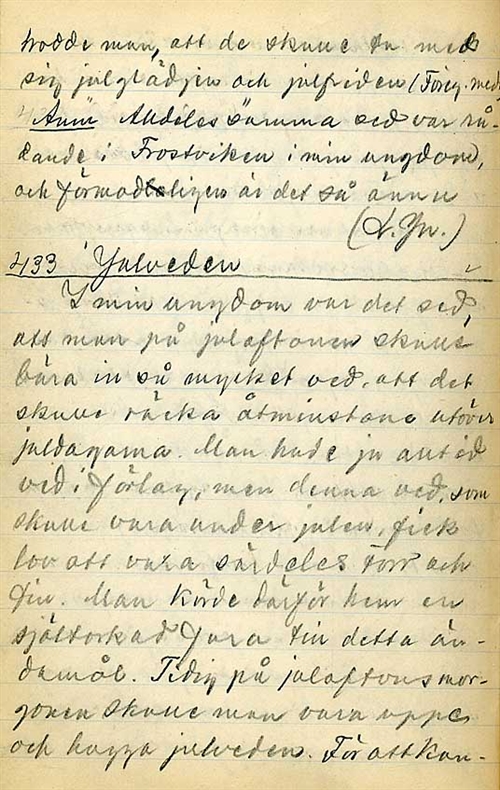 trodde man, att de skulle ta med
sig julglädjen och julfriden (Föreg. med
Anm Alldeles samma sed var rå-
dande i Frostviken i min ungdom,
och förmodligen är det så ännu
(L. Yn.)
433 Julveden
I min ungdom var det sed,
att man på julaftonen skulle
bära in så mycket ved, att det
skulle räcka åtminstone utöver
juldagarna. Man hade ju alltid
ved i förlag, men denna ved, som
skulle vara under julen, fick
lov att vara särdeles torr och
fin. Man körde därför hem en
själtorkad fura till detta än-
damål. Tidig på julaftonsmor-
gonen skulle man vara uppe
och hugga julveden. För att kun-